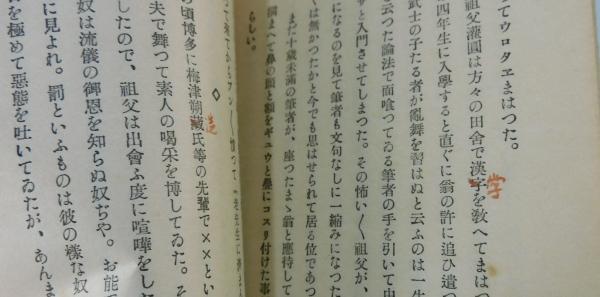 つてウロタヱまはつた。
祖父灌圓は方々の田舍で漢字を敎へてまはつ
学
四年生に入學すると直ぐに翁の許に追ひ遣つ
武士の子たる者が亂舞を習はぬと云ふのは一生
と云つた論法で面喰つてゐる筆者の手を引いて中
サと入門させてしまつた。その怖い〱祖父が、
になるのを見て筆者も文句なしに一縮みになつた
くは無かつたかと今でも思はせられて居る位であつ
また十歳未滿の筆者が、座つたまゝ翁と應待して
掴まへて鼻の頭と額をギュウと疊にコスリ付けた事
らしい。
◇
の頃博多に梅津朔藏氏等の先輩で××とい
造
夫で舞つて素人の喝采を博してゐた。そ
したので、祖父は出會ふ度に喧嘩をし
奴は流儀の御恩を知らぬ奴ぢや。お能
に見よれ。罰といふものは彼の樣な奴
を極めて惡態を吐いてゐたが、あんま